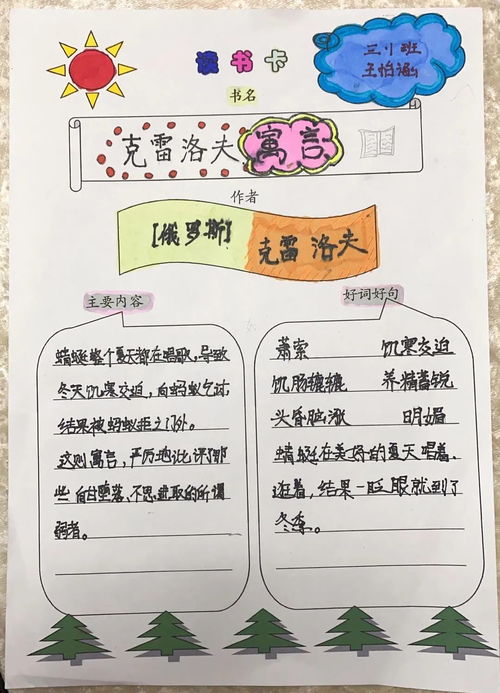 读书卡
三小班
王怡涵
书名
克雷洛夫寓言
作者
[俄罗斯]
克雷洛夫
主要内容
蜻蜓整个夏天都在唱歌,导致
冬天饥寒交迫,向蚂蚁乞讨,
结果被蚂蚁拒之门外。
这则寓言,严厉地批评了那
些自甘堕落、不思进取的所谓
弱者。
好词好句
萧索 饥寒交迫
饥肠辘辘 养精蓄锐
头昏脑涨 明媚
蜻蜓在美好的夏天唱着、
逛着,结果一眨眼就到了
冬季。